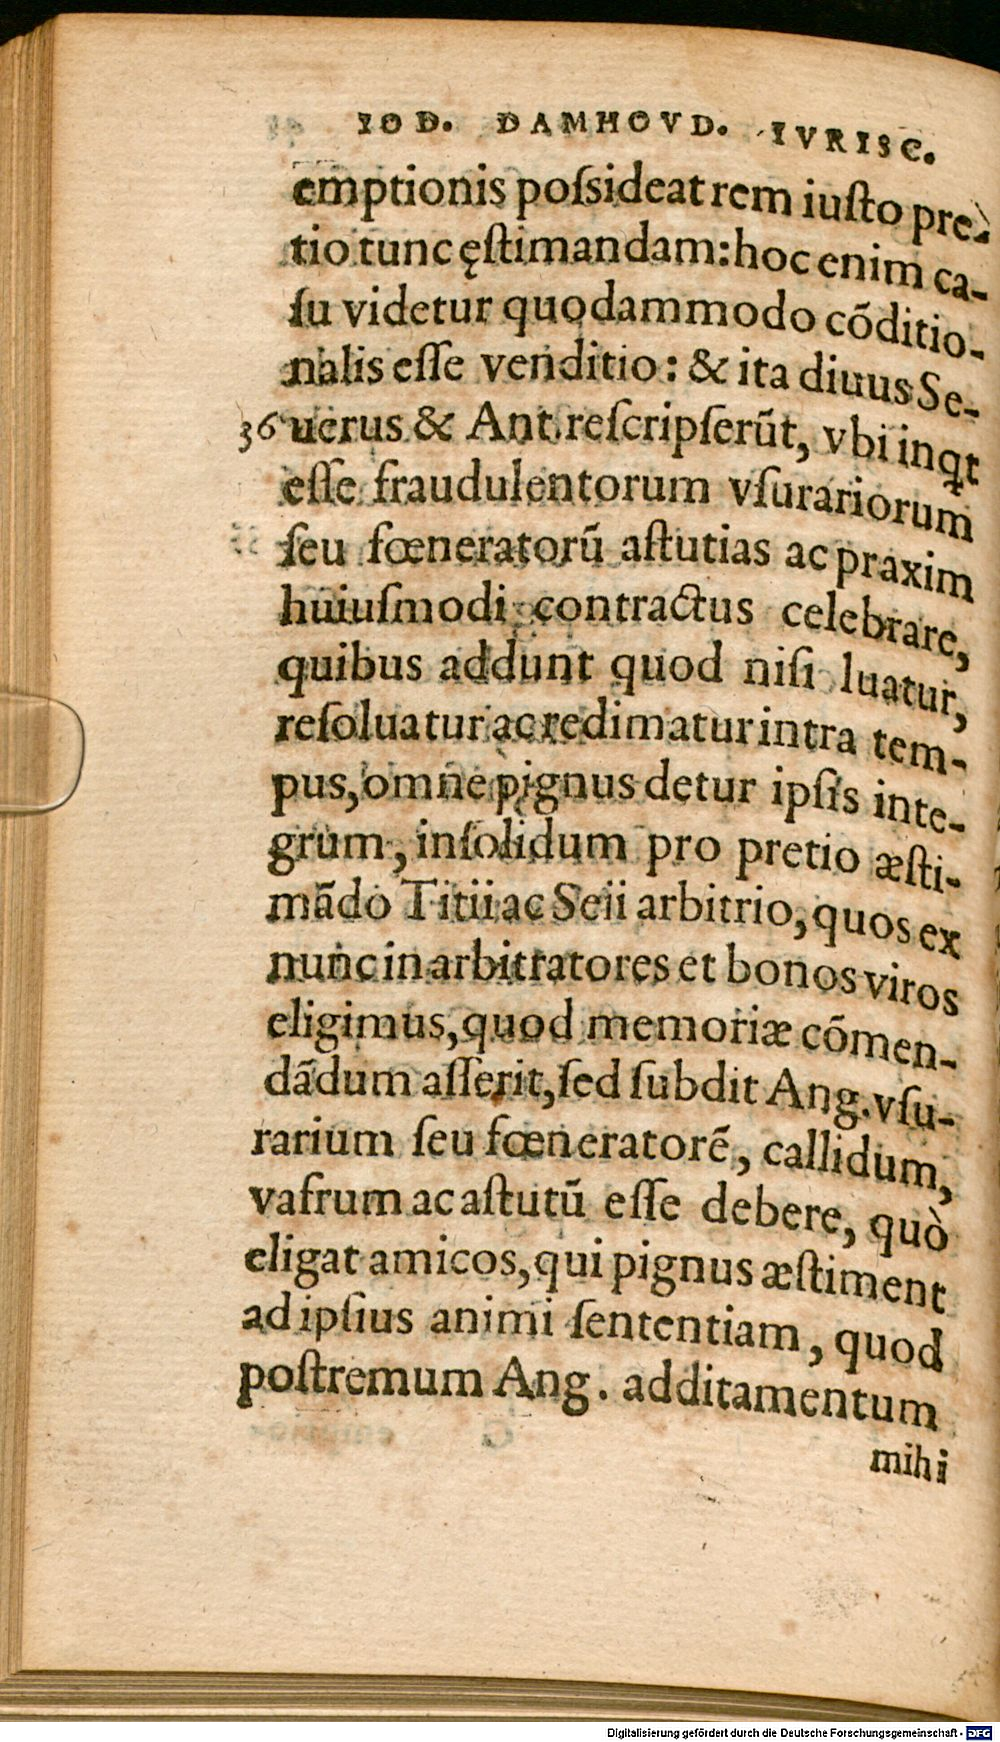 IOD. DAMHOVD. IVRISC.
emptionis poſsideat rem iuſto pre-
tio tunc ęſtimandam: hoc enim ca-
ſu videtur quodammodo cōditio-
nalis eſſe venditio: & ita diuus Se-
36 uerus & Ant. reſcripſerūt, vbi inqt
eſſe fraudulentorum vſurariorum
ſeu fœneratorū aſtutias ac praxim
huiuſmodi contractus celebrare,
quibus addunt quod niſi luatur,
reſoluatur ac redimatur intra tem-
pus, omne pignus detur ipſis inte-
grum, inſolidum pro pretio æſti-
mādo Titii ac Seii arbitrio, quos ex
nunc in arbitratores et bonos viros
eligimus, quod memoriæ cōmen-
dādum aſſerit, ſed ſubdit Ang. vſu-
rarium ſeu fœneratorē, callidum,
vafrum ac aſtutū eſſe debere, quò
eligat amicos, qui pignus æſtiment
ad ipſius animi ſententiam, quod
poſtremum Ang. additamentum
mihi
Digitalisierung gefördert durch die Deutsche Forschungsgemeinschaft - DFG